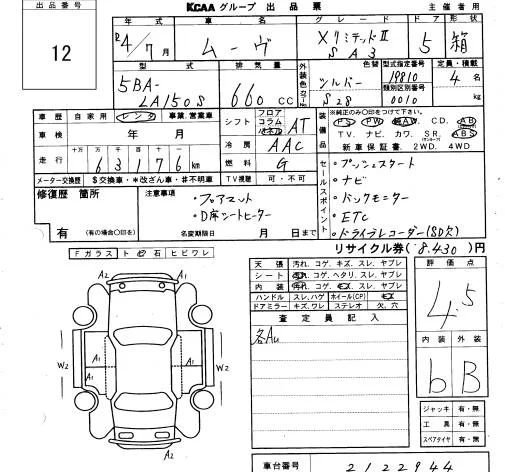 出品番号
12
KCAA グループ 出品票
主催者用
年式 車名 グレード ドア 形状
R4/7月 ムーヴ XリミテッドⅡ SA3 5 箱
型式 排気量 外装色 色替 型式指定番号 定員・積載
5BA-LA150S 660cc シルバー 19810 4名
類別区分番号
S28 0010 kg
車歴 自家用 レンタ 事業、営業車
車検 年 月
シフト フロア コラム パネル AT
冷房 AAC
走行 十万 万 千 百 十
63176km
燃料 G
メーター交換歴 $交換車・*改ざん車・#不明車
TV視聴 可・不可
装備品 ※純正のみ○印をつけて下さい。
PS PW CD. AB
TV. ナビ. カワ. SR. ABS
新車保証書. 2WD. 4WD
セールスポイント
・プッシュスタート
・ナビ
・バックモニター
・ETC
・ドライブレコーダー(SD欠)
修復歴 箇所
有 (有の場合○印を)
注意事項
・フロアマット
・D席シートヒーター
名変期限日 月 日まで
リサイクル券(8,430)円
Fガラス ト 石 ヒビワレ
天張 汚れ、コゲ、キズ、スレ、ヤブレ
シート 汚れ、コゲ、ヘタリ、スレ、ヤブレ
内装 汚れ、コゲ、キズ、スレ、ヤブレ
ハンドル スレ、ハゲ ホイール(CP) キズ
ドアミラー キズ、ワレ ステレオ 欠、穴
査定員記入
各Au
評価点
4.5
内装 外装
b B
ジャッキ 有・無
工具 有・無
スペアタイヤ 有・無
A2
W2 A1 A1 A1 W2
A2
車台番号 2122944